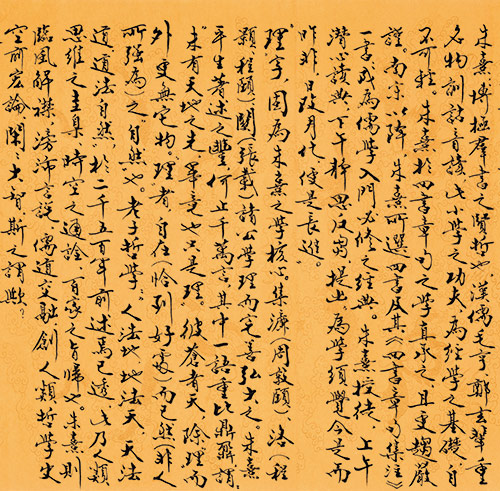 朱熹博極群書之賢哲也漢儒毛亨鄭玄輩重
名物訓詁音義此小學之功夫為經學之基礎自
不可輕朱熹於四書章句之學真承之且更趨嚴
謹南宋以降朱熹所選四書及其《四書章句集注》
一書乃為儒學入門必修之經典。朱熹授徒上午
潛心讀典下午靜思反芻提出為學須覺今是而
昨非日改月化便是長進。
理字固為朱熹之學核心集濂(周敦頤)洛(程
顥、程頤)關(張載)諸公學理而完善弘大之。朱熹
平生著述之豐何止千萬言其中一語重比鼎鼐謂
"未有天地之先畢竟也只是理"彼蒼者天除理而
外更無定物。理者自在(恰到好處)而已然非人
所強為之自然也。老子哲學"人法地地法天天法
道道法自然"於二千五百年前述焉已透此乃人類
思維之圭臬時空之通詮百家之旨歸也。朱熹則
臨風解襟滂沛言說儒道交融創人類哲學史
空前宏論閎閎大智斯之謂歟?